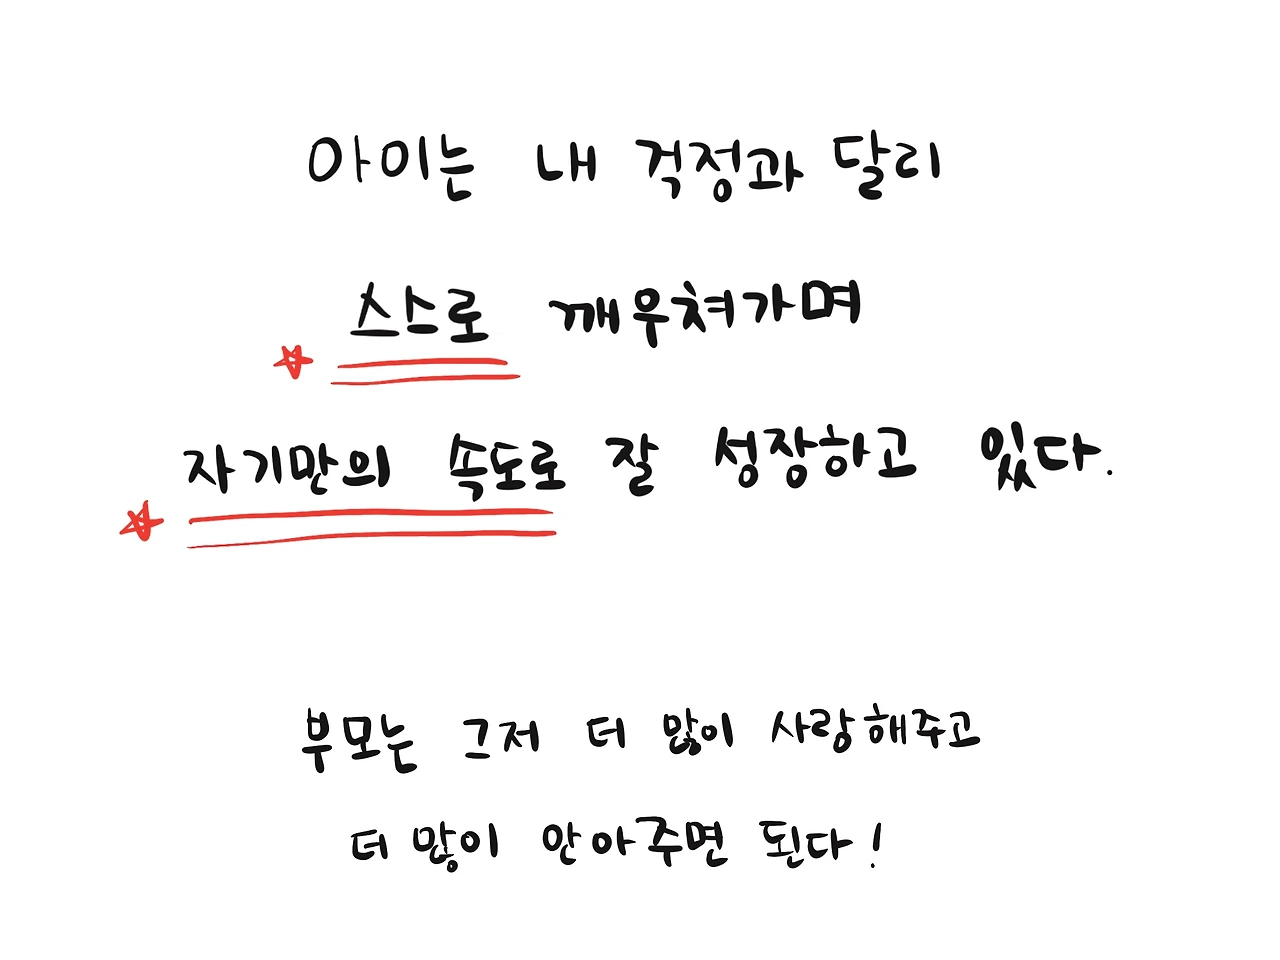 아이는 내 걱정과 달리
스스로 깨우쳐가며
자기만의 속도로 잘 성장하고 있다.
부모는 그저 더 많이 사랑해주고
더 많이 안아주면 된다!